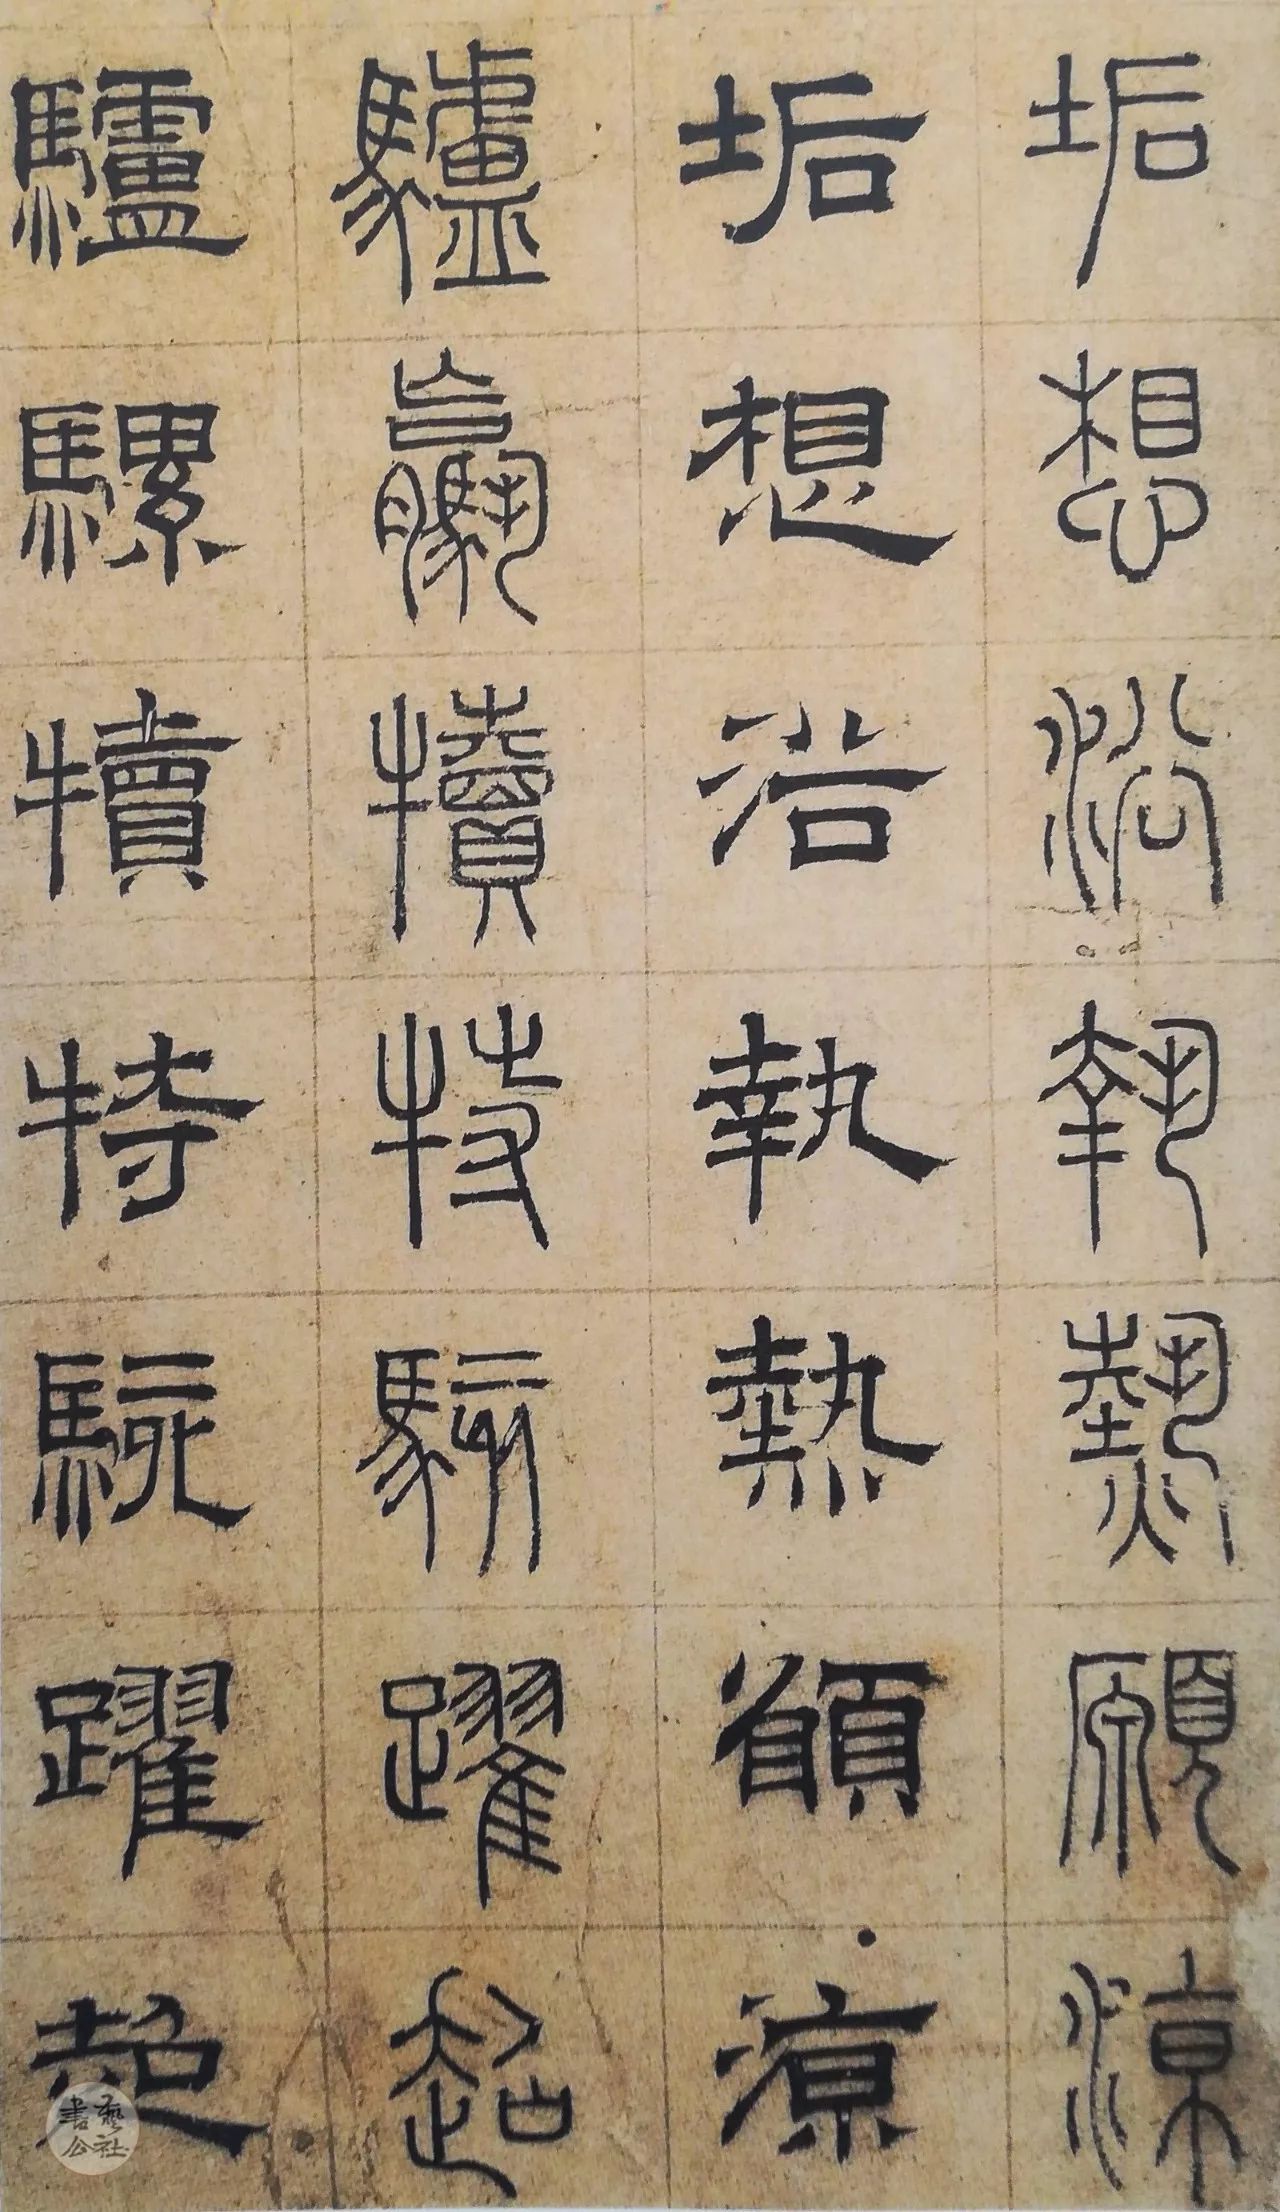 垢想浴執熱願涼
垢想浴執熱願涼
驢驘犢特駭躍超
驢騾犢特駭躍超
書藝公社